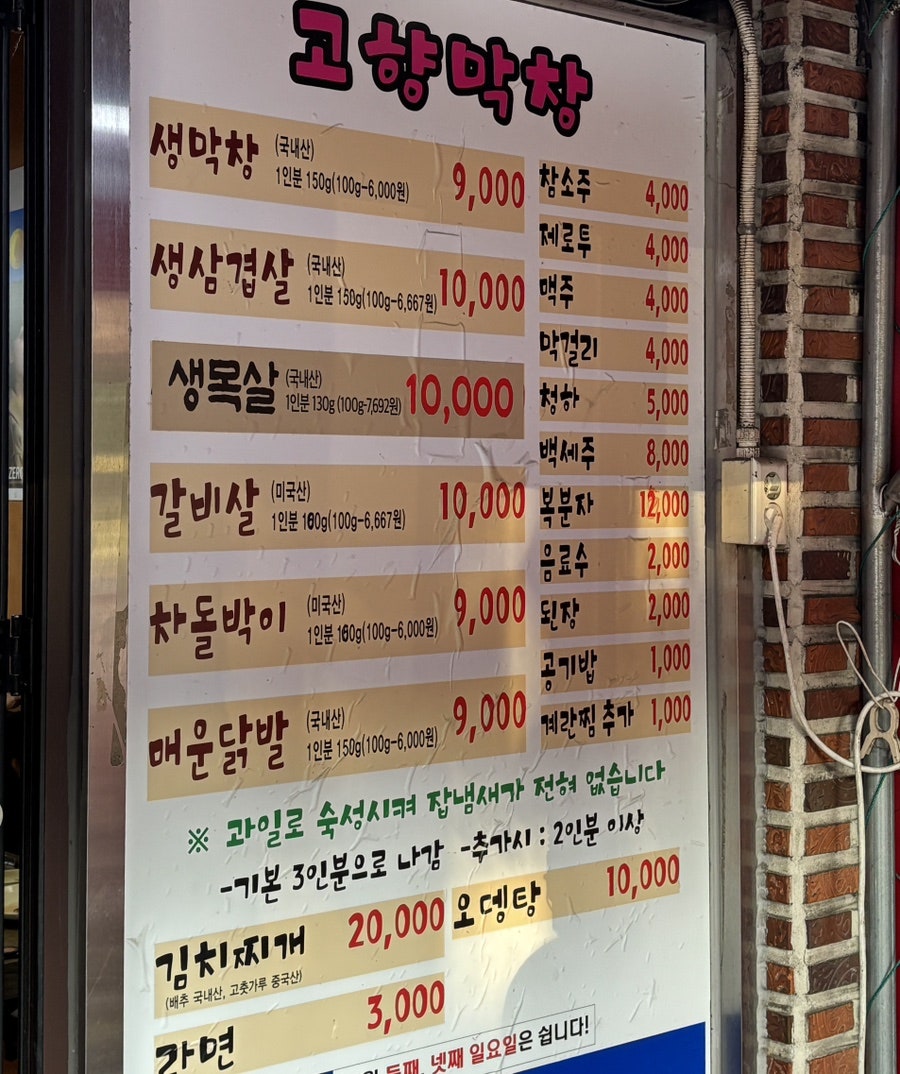 고향막창
생막창 (국내산) 1인분 150g(100g-6,000원) 9,000
생삼겹살 (국내산) 1인분 150g(100g-6,667원) 10,000
생목살 (국내산) 1인분 130g (100g-7,692원) 10,000
갈비살 (미국산) 1인분 160g(100g-6,667원) 10,000
차돌박이 (미국산) 1인분 160g(100g-6,000원) 9,000
매운닭발 (국내산) 1인분 150g(100g-6,000원) 9,000
참소주 4,000
제로투 4,000
맥주 4,000
막걸리 4,000
청하 5,000
백세주 8,000
복분자 12,000
음료수 2,000
된장 2,000
공기밥 1,000
계란찜 추가 1,000
※ 과일로 숙성시켜 잡냄새가 전혀 없습니다
-기본 3인분으로 나감 -추가시 : 2인분 이상
김치찌개 20,000
(배추 국내산, 고춧가루 중국산)
오뎅탕 10,000
라면 3,000
둘째, 넷째 일요일은 쉽니다!
ZERO